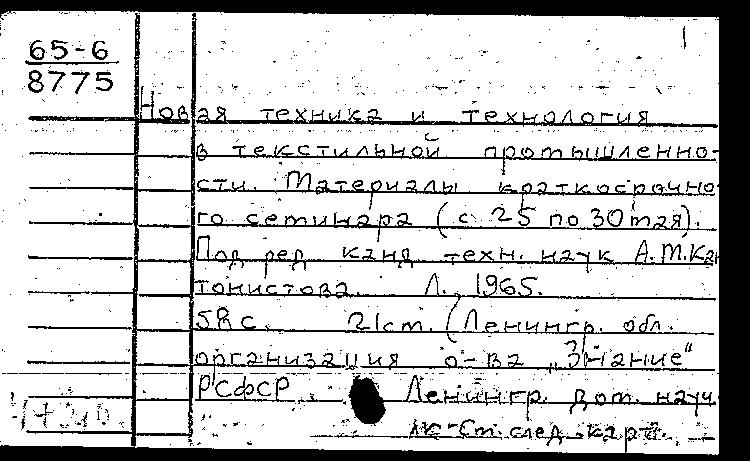 65-6
8775
Новая техника и технология
в текстильной промышленно-
сти. Материалы краткосрочно-
го семинара (с 25 по 30 мая).
Под ред. канд. техн. наук А.М.Кан-
тонистова. Л., 1965.
58 с. 21 см. (Ленингр. обл.
организация о-ва „Знание"
РСФСР. Ленингр. дом. науч.
См. след. карт.